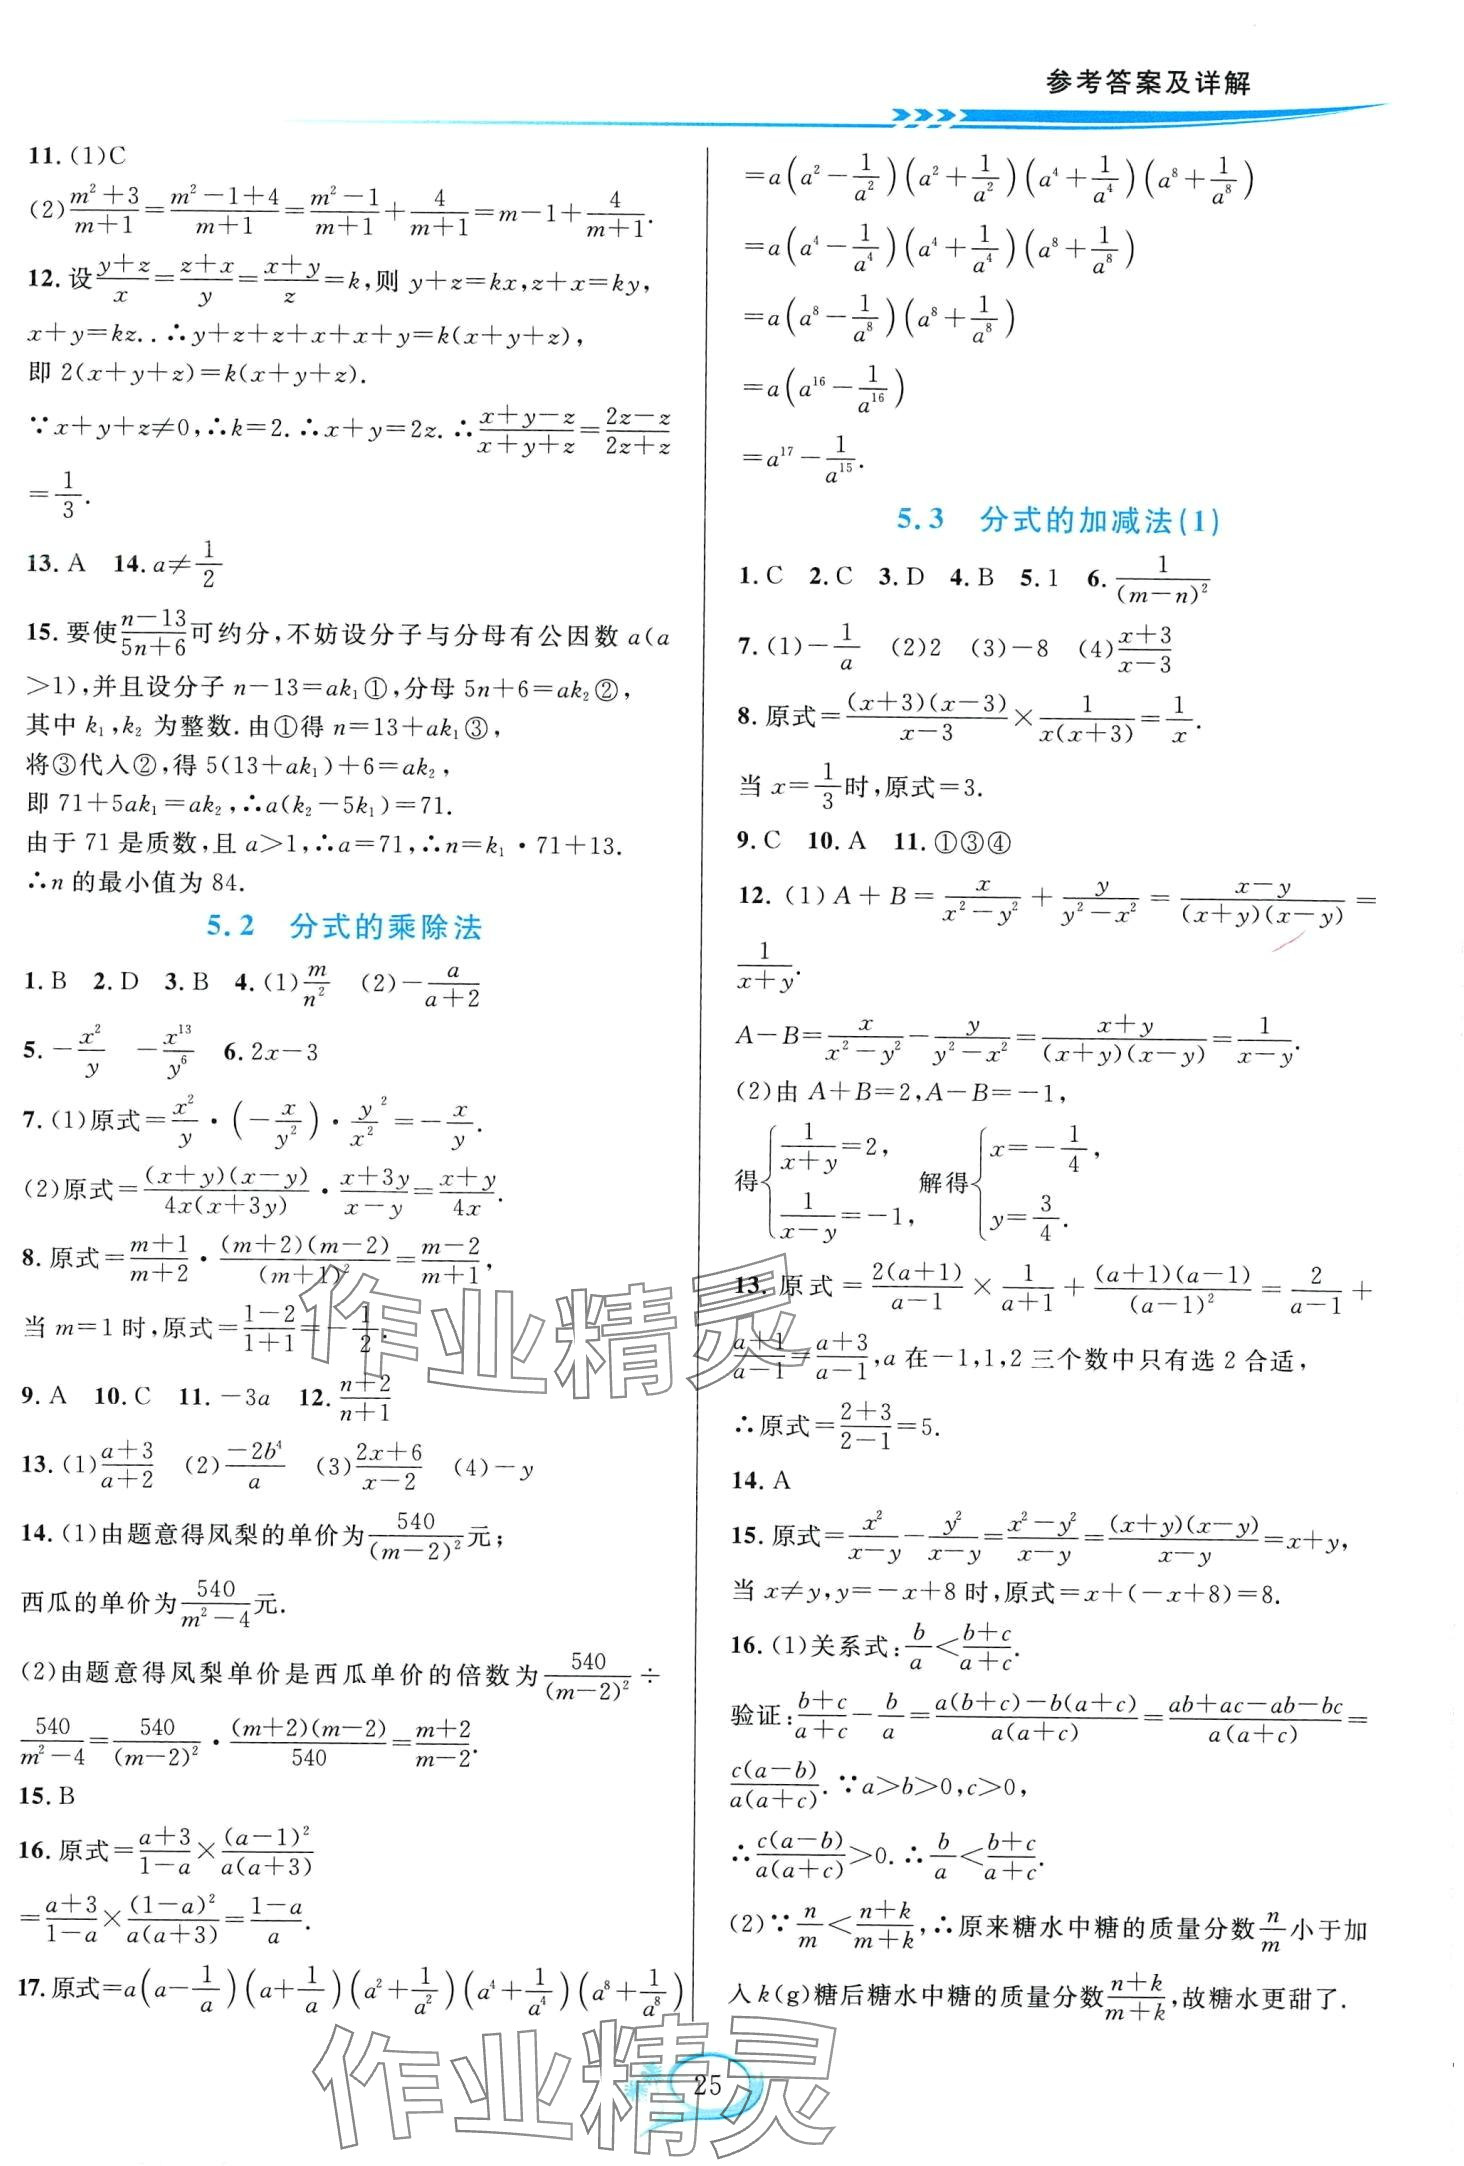 参考答案及详解
11.(1)C
(2)\frac{m²+3}{m+1}=\frac{m²-1+4}{m+1}=\frac{m²-1}{m+1}+\frac{4}{m+1}=m-1+\frac{4}{m+1}.
12.设\frac{y+z}{x}=\frac{z+x}{y}=\frac{x+y}{z}=k,则 y+z=kx,z+x=ky,
x+y=kz..∴y+z+z+x+x+y=k(x+y+z),
即 2(x+y+z)=k(x+y+z).
∵x+y+z≠0,∴k=2.∴x+y=2z.∴\frac{x+y-z}{x+y+z}=\frac{2z-z}{2z+z}
=\frac{1}{3}.
13.A 14.a≠\frac{1}{2}
15.要使\frac{n-13}{5n+6}可约分,不妨设分子与分母有公因数 a(a
>1),并且设分子 n-13=ak₁①,分母 5n+6=ak₂②,
其中 k₁,k₂ 为整数.由①得 n=13+ak₁③,
将③代入②,得 5(13+ak₁)+6=ak₂,
即 71+5ak₁=ak₂,∴a(k₂-5k₁)=71.
由于 71 是质数,且 a>1,∴a=71,∴n=k₁·71+13.
∴n 的最小值为 84.
5.2 分式的乘除法
1.B 2.D 3.B 4.(1)\frac{m}{n²} (2)-\frac{a}{a+2}
5.-\frac{x²}{y} -\frac{x¹³}{y⁶} 6.2x-3
7.(1)原式=\frac{x²}{y}·(-\frac{x}{y²})·\frac{y²}{x²}=-\frac{x}{y}.
(2)原式=\frac{(x+y)(x-y)}{4x(x+3y)}·\frac{x+3y}{x-y}=\frac{x+y}{4x}.
8.原式=\frac{m+1}{m+2}·\frac{(m+2)(m-2)}{(m+1)²}=\frac{m-2}{m+1},
当 m=1 时,原式=\frac{1-2}{1+1}=-\frac{1}{2}.
9.A 10.C 11.-3a 12.\frac{n+2}{n+1}
13.(1)\frac{a+3}{a+2} (2)\frac{-2b⁴}{a} (3)\frac{2x+6}{x-2} (4)-y
14.(1)由题意得凤梨的单价为\frac{540}{(m-2)²}元;
西瓜的单价为\frac{540}{m²-4}元.
(2)由题意得凤梨单价是西瓜单价的倍数为\frac{540}{(m-2)²}÷
\frac{540}{m²-4}=\frac{540}{(m-2)²}·\frac{(m+2)(m-2)}{540}=\frac{m+2}{m-2}.
15.B
16.原式=\frac{a+3}{1-a}×\frac{(a-1)²}{a(a+3)}
=\frac{a+3}{1-a}×\frac{(1-a)²}{a(a+3)}=\frac{1-a}{a}.
17.原式=a(a-\frac{1}{a})(a+\frac{1}{a})(a²+\frac{1}{a²})(a⁴+\frac{1}{a⁴})(a⁸+\frac{1}{a⁸})
=a(a²-\frac{1}{a²})(a²+\frac{1}{a²})(a⁴+\frac{1}{a⁴})(a⁸+\frac{1}{a⁸})
=a(a⁴-\frac{1}{a⁴})(a⁴+\frac{1}{a⁴})(a⁸+\frac{1}{a⁸})
=a(a⁸-\frac{1}{a⁸})(a⁸+\frac{1}{a⁸})
=a(a¹⁶-\frac{1}{a¹⁶})
=a¹⁷-\frac{1}{a¹⁵}.
5.3 分式的加减法(1)
1.C 2.C 3.D 4.B 5.1 6.\frac{1}{(m-n)²}
7.(1)-\frac{1}{a} (2)2 (3)-8 (4)\frac{x+3}{x-3}
8.原式=\frac{(x+3)(x-3)}{x-3}×\frac{1}{x(x+3)}=\frac{1}{x}.
当 x=\frac{1}{3}时,原式=3.
9.C 10.A 11.①③④
12.(1)A+B=\frac{x}{x²-y²}+\frac{y}{y²-x²}=\frac{x-y}{(x+y)(x-y)}=
\frac{1}{x+y}.
A-B=\frac{x}{x²-y²}-\frac{y}{y²-x²}=\frac{x+y}{(x+y)(x-y)}=\frac{1}{x-y}.
(2)由 A+B=2,A-B=-1,
得{\frac{1}{x+y}=2, \frac{1}{x-y}=-1, 解得{x=-\frac{1}{4}, y=\frac{3}{4}.
13.原式=\frac{2(a+1)}{a-1}×\frac{1}{a+1}+\frac{(a+1)(a-1)}{(a-1)²}=\frac{2}{a-1}+
\frac{a+1}{a-1}=\frac{a+3}{a-1},a 在-1,1,2 三个数中只有选 2 合适,
∴原式=\frac{2+3}{2-1}=5.
14.A
15.原式=\frac{x²}{x-y}-\frac{y²}{x-y}=\frac{x²-y²}{x-y}=\frac{(x+y)(x-y)}{x-y}=x+y,
当 x≠y,y=-x+8 时,原式=x+(-x+8)=8.
16.(1)关系式:\frac{b}{a}<\frac{b+c}{a+c}.
验证:\frac{b+c}{a+c}-\frac{b}{a}=\frac{a(b+c)-b(a+c)}{a(a+c)}=\frac{ab+ac-ab-bc}{a(a+c)}=
\frac{c(a-b)}{a(a+c)}.∵a>b>0,c>0,
∴\frac{c(a-b)}{a(a+c)}>0.∴\frac{b}{a}<\frac{b+c}{a+c}.
(2)∵\frac{n}{m}<\frac{n+k}{m+k},∴原来糖水中糖的质量分数\frac{n}{m}小于加
入 k(g)糖后糖水中糖的质量分数\frac{n+k}{m+k},故糖水更甜了.
作业精灵
作业精灵
25